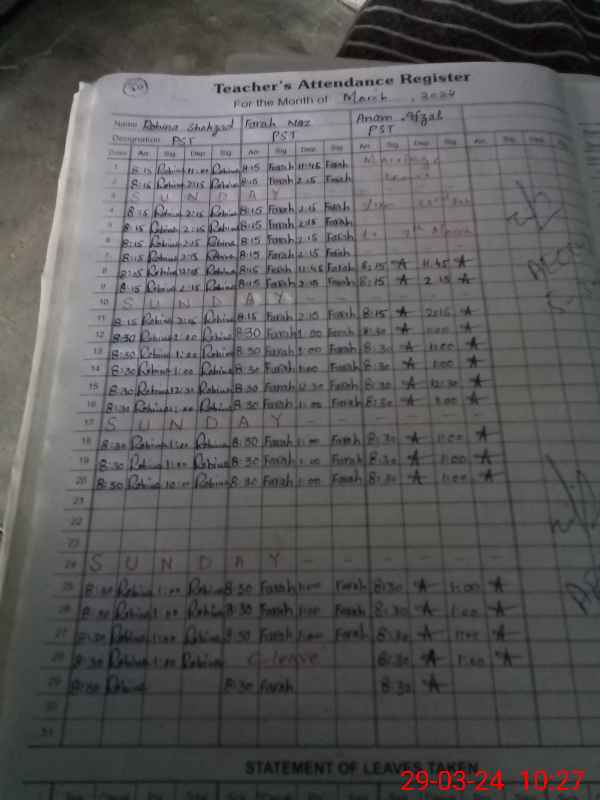 30
Teacher's Attendance Register
For the Month of March, 2024
Name Robina Shahzad Farah Naz Anam Afzal
Designation PST PST PST
Date Arr. Sig. Dep. Sig. Arr. Sig. Dep. Sig. Arr. Sig. Dep. Sig. Arr. Sig. Dep. Sig.
1 8:15 Robina 11:00 Robina 8:15 Farah 11:45 Farah Marriage
2 8:15 Robina 2:15 Robina 8:15 Farah 2:15 Farah
3 SUNDAY
4 8:15 Robina 2:15 Robina 8:15 Farah 2:15 Farah
5 8:15 Robina 2:15 Robina 8:15 Farah 2:15 Farah
6 8:15 Robina 2:15 Robina 8:15 Farah 2:15 Farah
7 8:15 Robina 2:15 Robina 8:15 Farah 2:15 Farah
8 8:15 Robina Robina 8:15 Farah 11:45 Farah 8:15 A 11:45 A
9 8:15 Robina 2:15 Robina 8:15 Farah 2:15 Farah 8:15 A 2:15 A
10 SUNDAY - - - - - -
11 8:15 Robina 2:15 Robina 8:15 Farah 2:15 Farah 8:15 A 2:15 A
12 8:30 Robina 1:00 Robina 8:30 Farah 1:00 Farah 8:30 A 1:00 A
13 8:30 Robina 1:00 Robina 8:30 Farah 1:00 Farah 8:30 A 1:00 A
14 8:30 Robina 1:00 Robina 8:30 Farah 1:00 Farah 8:30 A 1:00 A
15 8:30 Robina 12:30 Robina 8:30 Farah 12:30 Farah 8:30 A 12:30 A
16 8:30 Robina 1:00 Robina 8:30 Farah 1:00 Farah 8:30 A 1:00 A
17 SUNDAY - - - - - -
18 8:30 Robina 1:00 Robina 8:30 Farah 1:00 Farah 8:30 A 1:00 A
19 8:30 Robina 1:00 Robina 8:30 Farah 1:00 Farah 8:30 A 1:00 A
20 8:30 Robina Robina 8:30 Farah 1:00 Farah 8:30 A 1:00 A
21
22
23
24 SUNDAY - - - - - -
25 8:30 Robina 1:00 Robina 8:30 Farah 1:00 Farah 8:30 A 1:00 A
26 8:30 Robina 1:00 Robina 8:30 Farah 1:00 Farah 8:30 A 1:00 A
27 8:30 Robina 1:00 Robina 8:30 Farah 1:00 Farah 8:30 A 1:00 A
28 8:30 Robina 1:00 Robina C-leave 8:30 A 1:00 A
29 8:30 Robina 8:30 Farah 8:30 A
30
31
STATEMENT OF LEAVES TAKEN
29-03-24 10:27